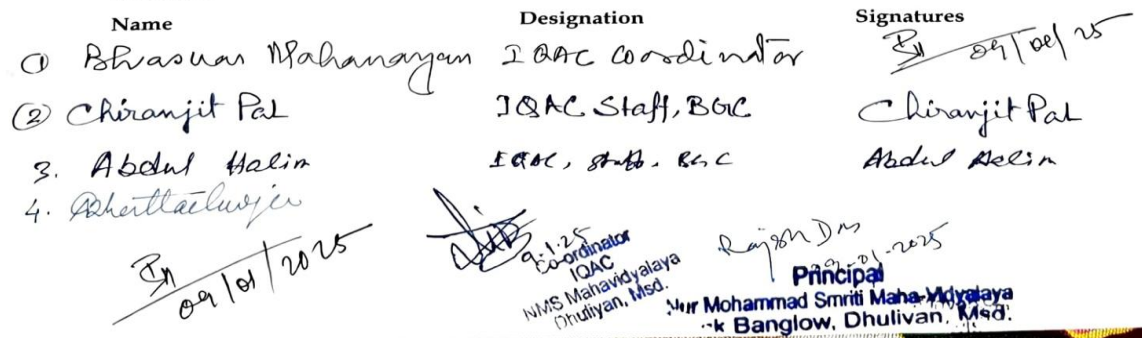 Name Designation Signatures
① Bhaswar Mahanayan IQAC coordinator 09/01/25
② Chiranjit Pal IQAC Staff, BGC Chiranjit Pal
3. Abdul Halim IQAC, staff. BGC Abdul Halim
4.
09/01/2025
9.1.25
Co-ordinator
IQAC
NMS Mahavidyalaya
Dhuliyan, Msd.
-01-2025
Principal
Nur Mohammad Smriti Maha-Vidyalaya
Banglow, Dhuliyan, Msd.